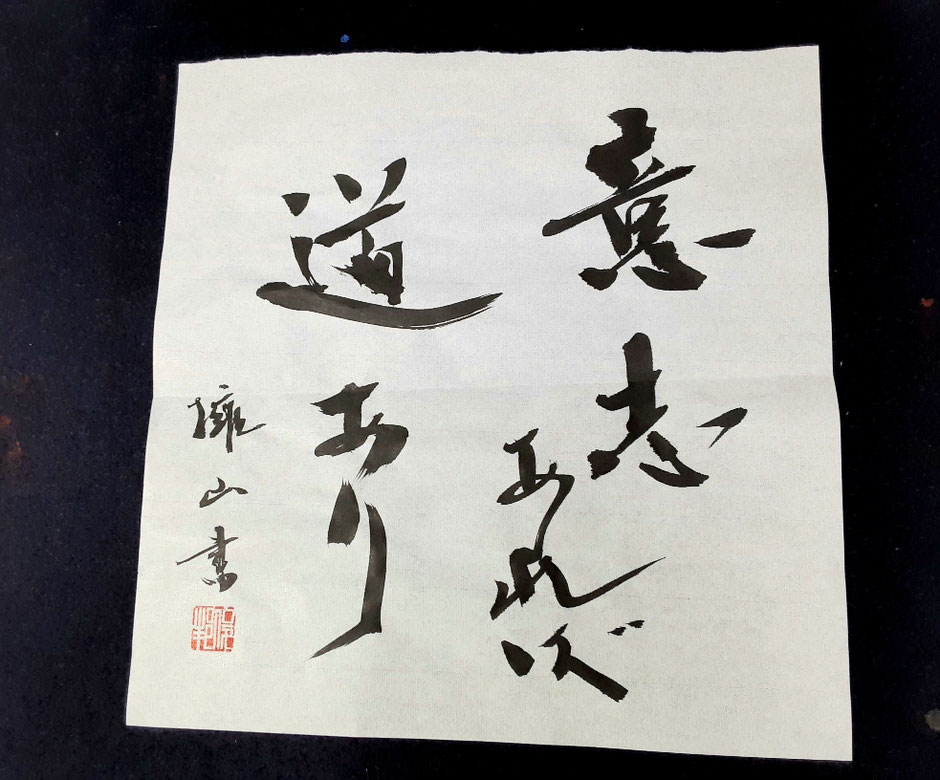 意志
あれば
道あり
山書